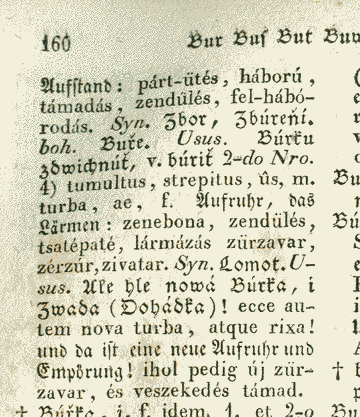 160 Bur Bus But Buw
Aufstand: párt-ütés, háború,
támadás, zendülés, fel-hábó-
rodás. Syn. Zbor, Zbúreňí.
boh. Buře. Usus. Búrku
zdwichnúť, v. búriť 2-do Nro.
4) tumultus, strepitus, ûs, m.
turba, ae, f. Aufruhr, das
Lärmen: zenebona, zendülés,
tsatépaté, lármázás zürzavar,
zérzúr, zivatar. Syn. Lomot. U-
sus. Ale hle nowá Búrka, i
Zwada (Dohádka)! ecce au-
tem nova turba, atque rixa!
und da ist eine neue Aufruhr und
Empörung! ihol pedig új zür-
zavar, és veszekedés támad.
† Búrka, i, f. idem. 1. et 2-o